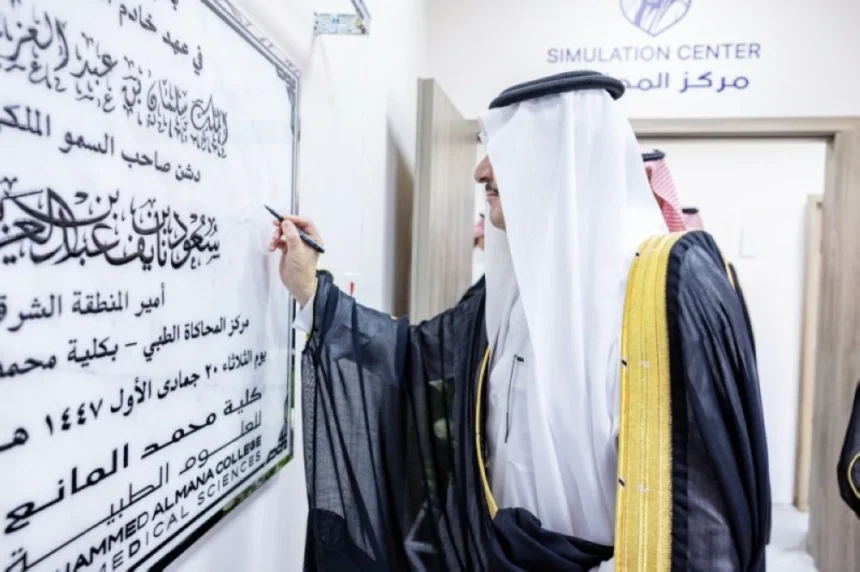 في عهد خادم
الملك سلمان بن عبد العز
دشن صاحب السمو الملكي
سعود بن نايف بن عبدالعزي
أمير المنطقة الشرق
مركز المحاكاة الطبي - بكلية محمد
يوم الثلاثاء ٢٠ جمادى الأول ١٤٤٧ هـ
كلية محمد المانع
للعلوم الطبية
HAMMED ALMANA COLLEGE
MEDICAL SCIENCES
SIMULATION CENTER
مركز المح